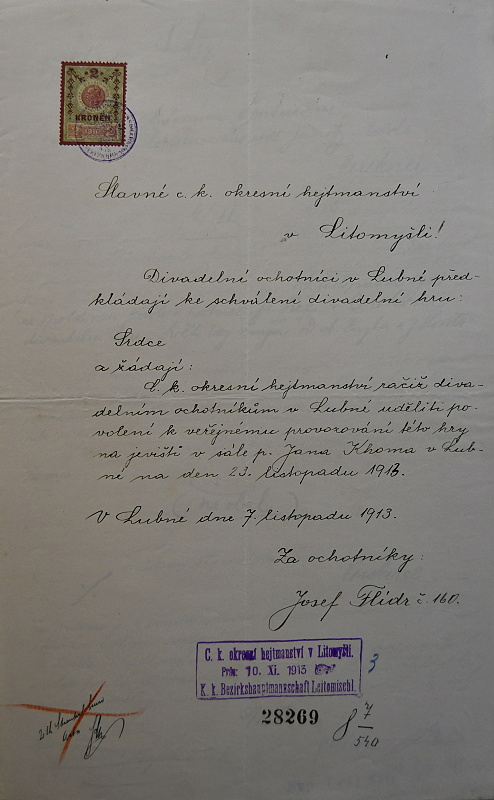 2
KRONEN
Slavné c. k. okresní hejtmanství
v Litomyšli!
Divadelní ochotníci v Lubné před-
kládají ke schválení divadelní hru:
Srdce
a žádají:
C. k. okresní hejtmanství račiž diva-
delním ochotníkům v Lubné uděliti po-
volení k veřejnému provozování této hry
na jevišti v sále p. Jana Khoma v Lub-
né na den 23. listopadu 1913.
V Lubné dne 7. listopadu 1913.
Za ochotníky:
Josef Flídr č. 160.
C. k. okresní hejtmanství v Litomyšli.
10. XI. 1913
K. k. Bezirkshauptmannschaft Leitomischl.
3
28269
8 7/540